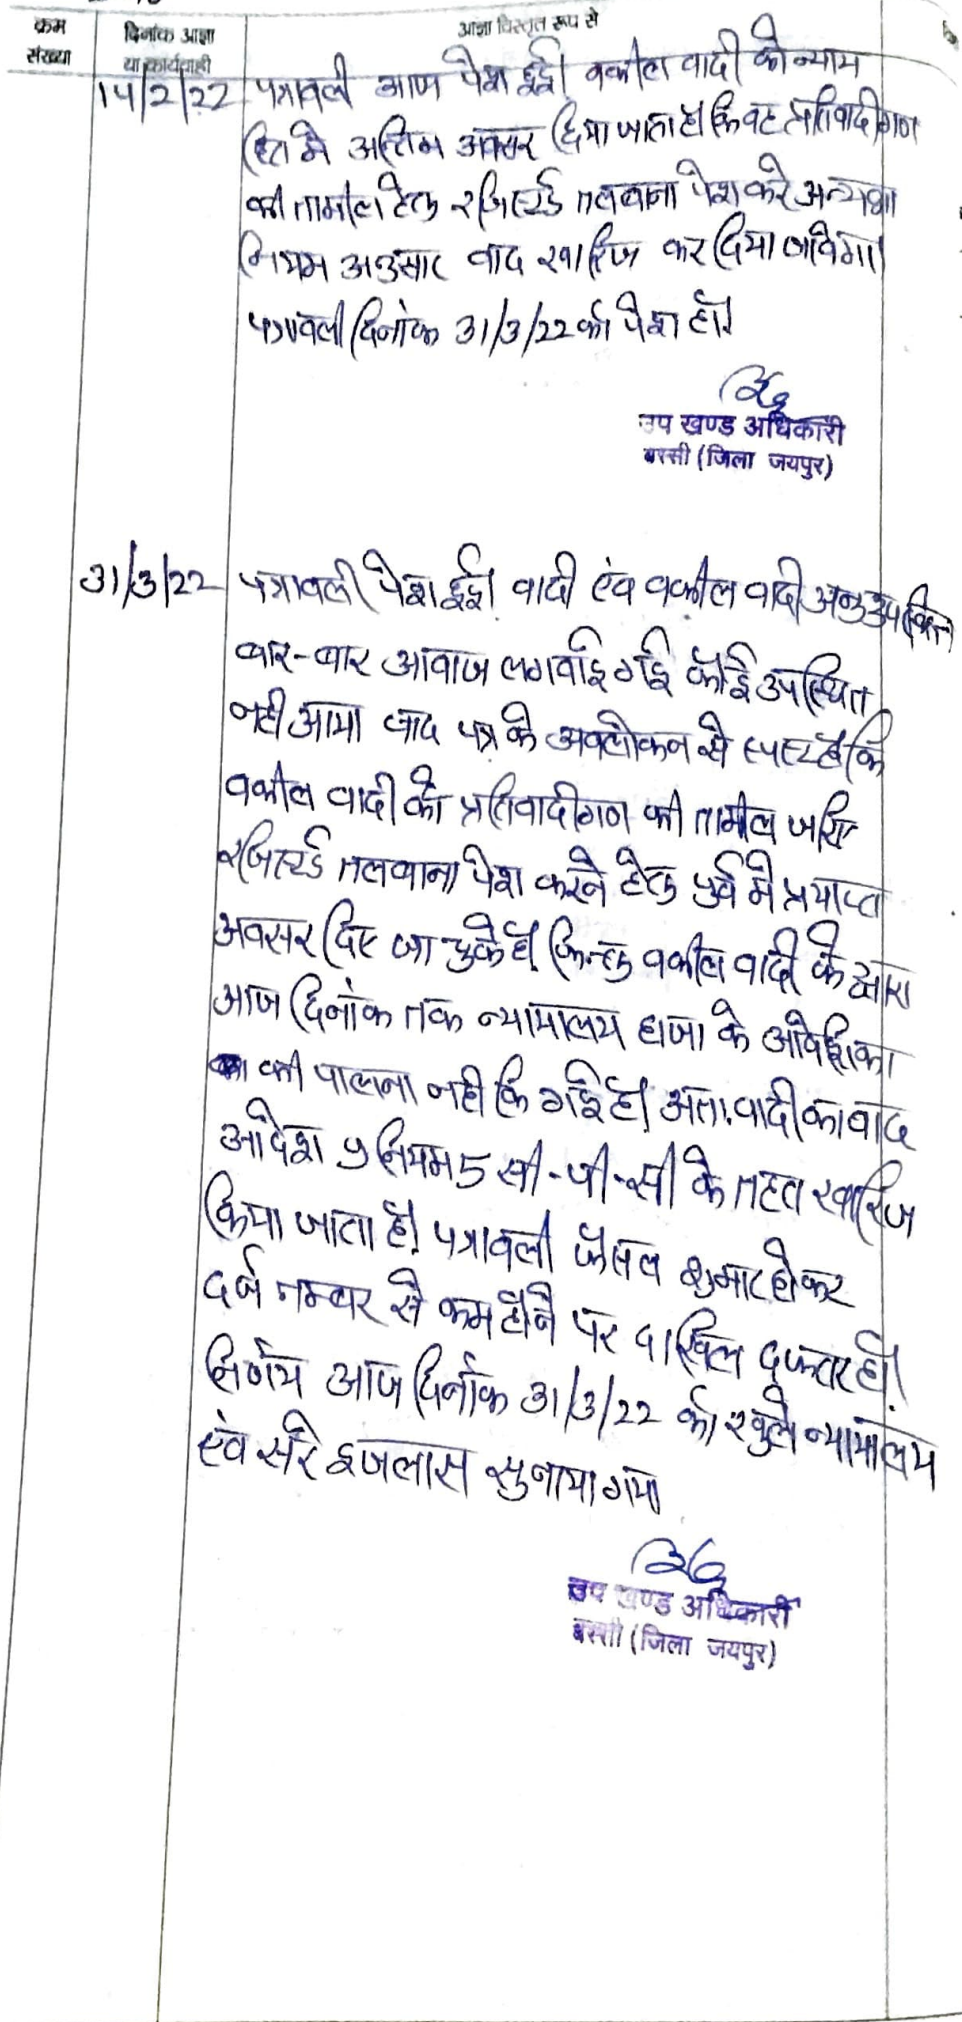 क्रम
संख्या
दिनांक आज्ञा
या कार्यवाही
आज्ञा विस्तृत रूप से
14/2/22 पत्रावली आज पेश हुई। वकील वादी को न्याय
हित मे अन्तिम अवसर दिया जाता है कि वह प्रतिवादीगण
की तामील हेतु रजिस्टर्ड तलबाना पेश करे अन्यथा
नियम अनुसार वाद खारिज कर दिया जावेगा।
पत्रावली दिनांक 31/3/22 को पेश हो।
उप खण्ड अधिकारी
बस्सी (जिला जयपुर)
31/3/22 पत्रावली पेश हुई। वादी एंव वकील वादी अनुउपस्थित
बार-बार आवाज लगवाई गई कोई उपस्थित
नही आया वाद पत्र के अवलोकन से स्पष्ट है कि
वकील वादी को प्रतिवादीगण की तामील जरिए
रजिस्टर्ड तलबाना पेश करने हेतु पुर्व मे प्रयाप्त
अवसर दिए जा चुके है। किन्तु वकील वादी के द्वारा
आज दिनांक तक न्यायालय हाजा के आदेशिका
की पालना नही कि गई है। अतः वादी का वाद
आदेश 9 नियम 5 सी-पी-सी के तहत खारिज
किया जाता है। पत्रावली फैसल शुमार होकर
दर्ज नम्बर से कम होने पर दाखिल दफ्तर हो।
निर्णय आज दिनांक 31/3/22 को खुले न्यायालय
एंव सरे इजलास सुनाया गया
उप खण्ड अधिकारी
बस्सी (जिला जयपुर)